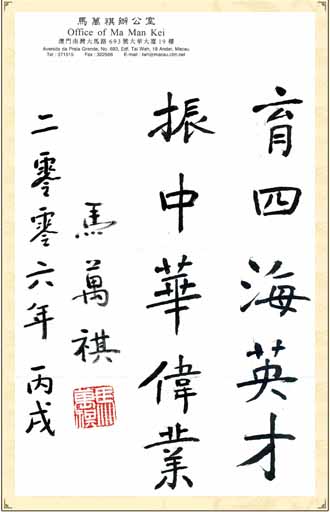 馬萬祺辦公室
Office of Ma Man Kei
澳門南灣大馬路693號大華大廈19樓
Avenida da Praia Grande, No. 693, Edf. Tai Wah, 19 Andar, Macau.
育四海英才
振中華偉業
馬萬祺
二零零六年 丙戌